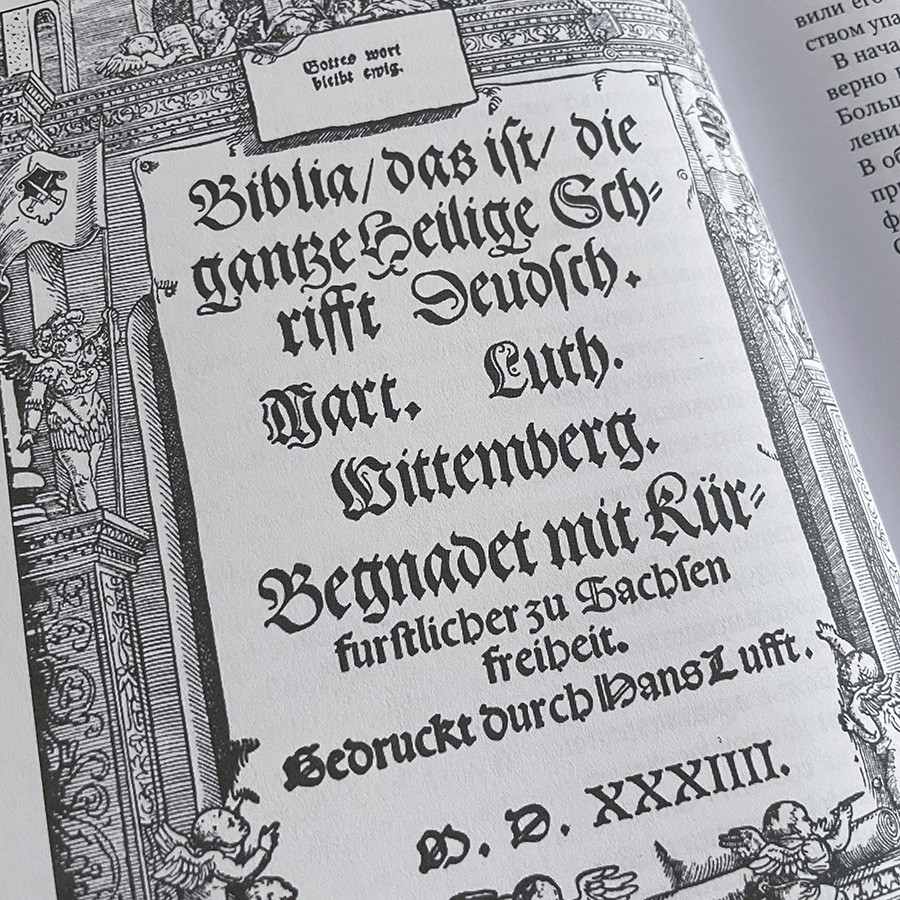 Gottes wort
bleibt ewig.
Biblia/das ist/ die
gantze Heilige Sch=
rifft Deudsch.
Mart. Luth.
Wittemberg.
Begnadet mit Kür=
furstlicher zu Sachsen
freiheit.
Gedruckt durch Hans Lufft.
M. D. XXXIIII.
вили его
ством упа
В нача
верно
Больш
лени
В об
пр
ф